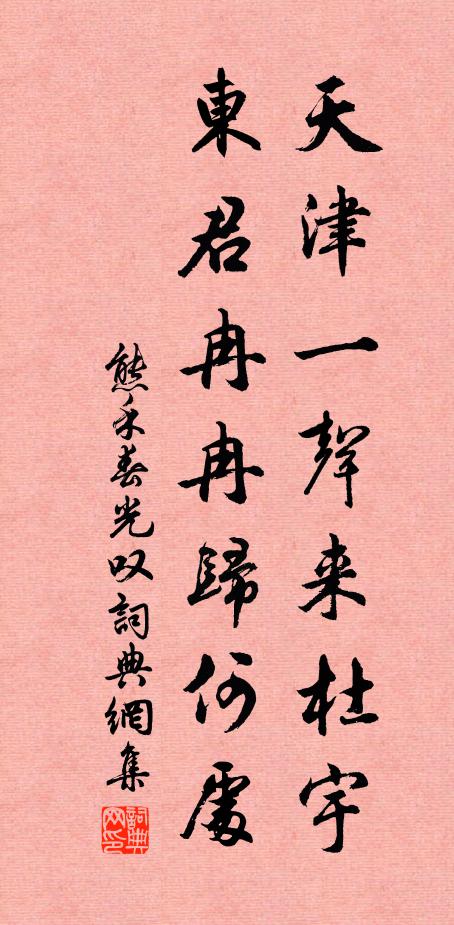 天津一聲来杜宇
東君冉冉歸何處
熊禾春光叹詞典網集
詞典网印